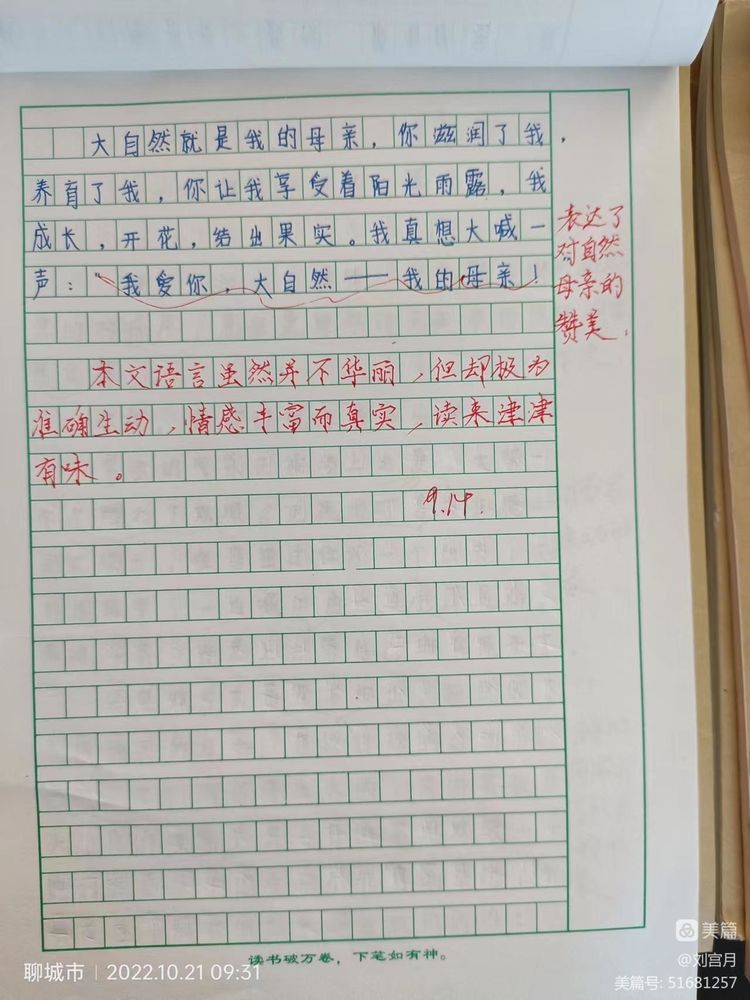 大自然就是我的母亲，你滋润了我，
养育了我，你让我享受着阳光雨露，我
成长，开花，结出果实。我真想大喊一
声：“我爱你，大自然——我的母亲！
表达了
对自然
母亲的
赞美。
本文语言虽然并不华丽，但却极为
准确生动，情感丰富而真实，读来津津
有味。
9.14.
读书破万卷，下笔如有神。
聊城市 | 2022.10.21 09:31
美篇
@刘宫月
美篇号: 51681257